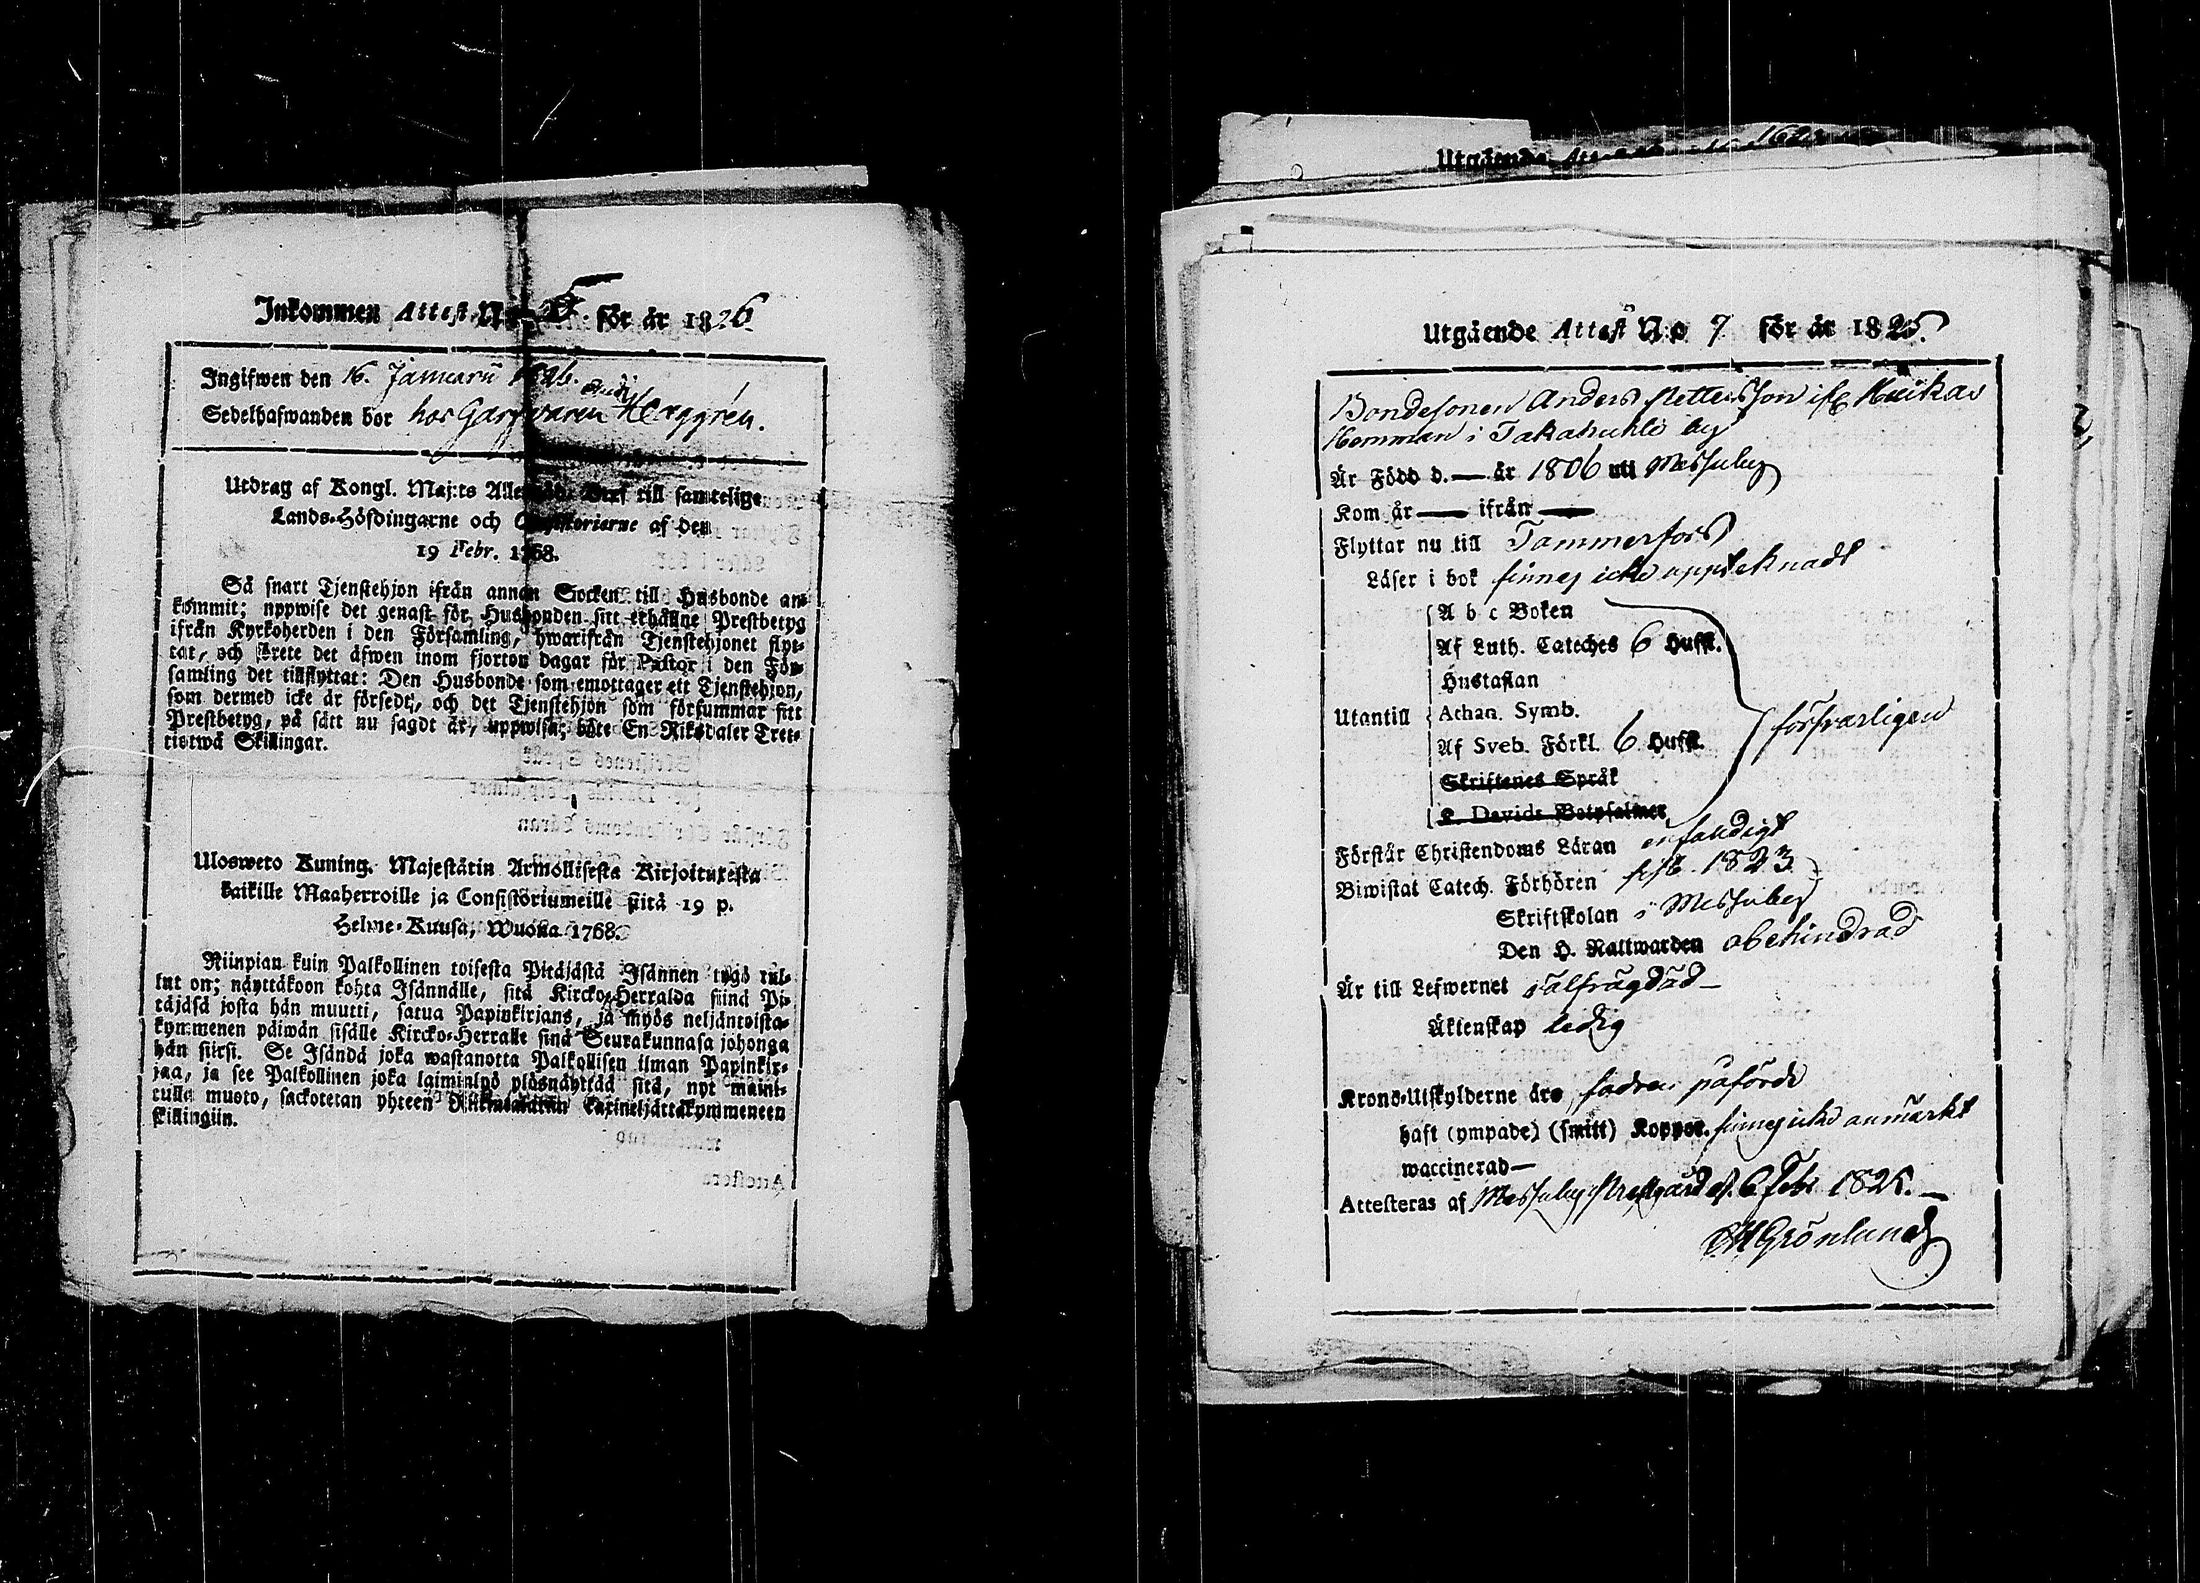 Inkommen Attest N:o 5 för år 1826
Ingifwen den 16. Januarii 1826.
Sedelhafwanden bor hos Garfvaren Herggrén.
Utdrag af Kongl. Maj:ts Allernåd. Bref till samtelige
Lands-Höfdingarne och Consistorierne af den
19 Febr. 1768.
Så snart Tjenstehjon ifrån annan Socken till Husbonde an-
kommit; uppwise det genast för Husbonden sitt erhållne Prestbetyg
ifrån Kyrkoherden i den Församling, hwarifrån Tjenstehjonet flyt-
tat, och förete det äfwen inom fjorton dagar för Pastor i den För-
samling det tillflyttat: Den Husbonde som emottager ett Tjenstehjon,
som dermed icke är försedt, och det Tjenstehjon som försummar sitt
Prestbetyg, på sätt nu sagdt är, uppwisa, böte En Riksdaler Tret-
tiotwå Skillingar.
Ulosweto Kuning. Majestätin Armollisesta Kirjoituxesta
kaikille Maaherroille ja Consistoriumeille siitä 19 p.
Helme-Kuusa, Wuonna 1768.
Niinpian kuin Palkollinen toisesta Pitäjästä Isännen tygö tul-
lut on; näyttäköön kohta Isännälle, sitä Kircko-Herralda siinä Pi-
täjäsä josta hän muutti, saatua Papinkirjans, ja myös neljäntoista-
kymmenen päiwän sisälle Kircko-Herralle siinä Seurakunnasa johonga
hän siirsi. Se Isändä joka wastanotta Palkollisen ilman Papinkir-
jaa, ja see Palkollinen joka laiminlyö ylösnäyttää sitä, nyt maini-
tulla muoto, sackotetan yhteen Riikintalariin Kaxineljättäkymmeneen
skillingiin.
Utgående Attest N:o 7 för år 1825.
Bondesonen Anders Pettersson ifr. Huikas
Hemman i Takahuhti by
Är Född d. — år 1806 uti Messuby
Kom år — ifrån —
Flyttar nu till Tammerfors
Läser i bok finnes icke uppteknadt
A b c Boken
Af Luth. Cateches 6 Hufst.
Hustaflan
Utantill Athan. Symb. försvarligen
Af Sveb. Förkl. 6 Hufst.
Skriftenes Språk
K. Davids Botpsalmer
Förstår Christendoms Läran enfaldigt
Biwistat Catech. Förhören sist. 1823
Skriftskolan i Messuby
Den H. Nattwarden obehindrad
Är till Lefwernet välfrägdad —
Äktenskap ledig
Krono-Utskylderne äro fadren påförde
haft (ympade) (smitt) Koppor. finnes icke anmärkt
waccinerad —
Attesteras af Messuby Prestgård d. 6 Febr 1825. —
Grönlund